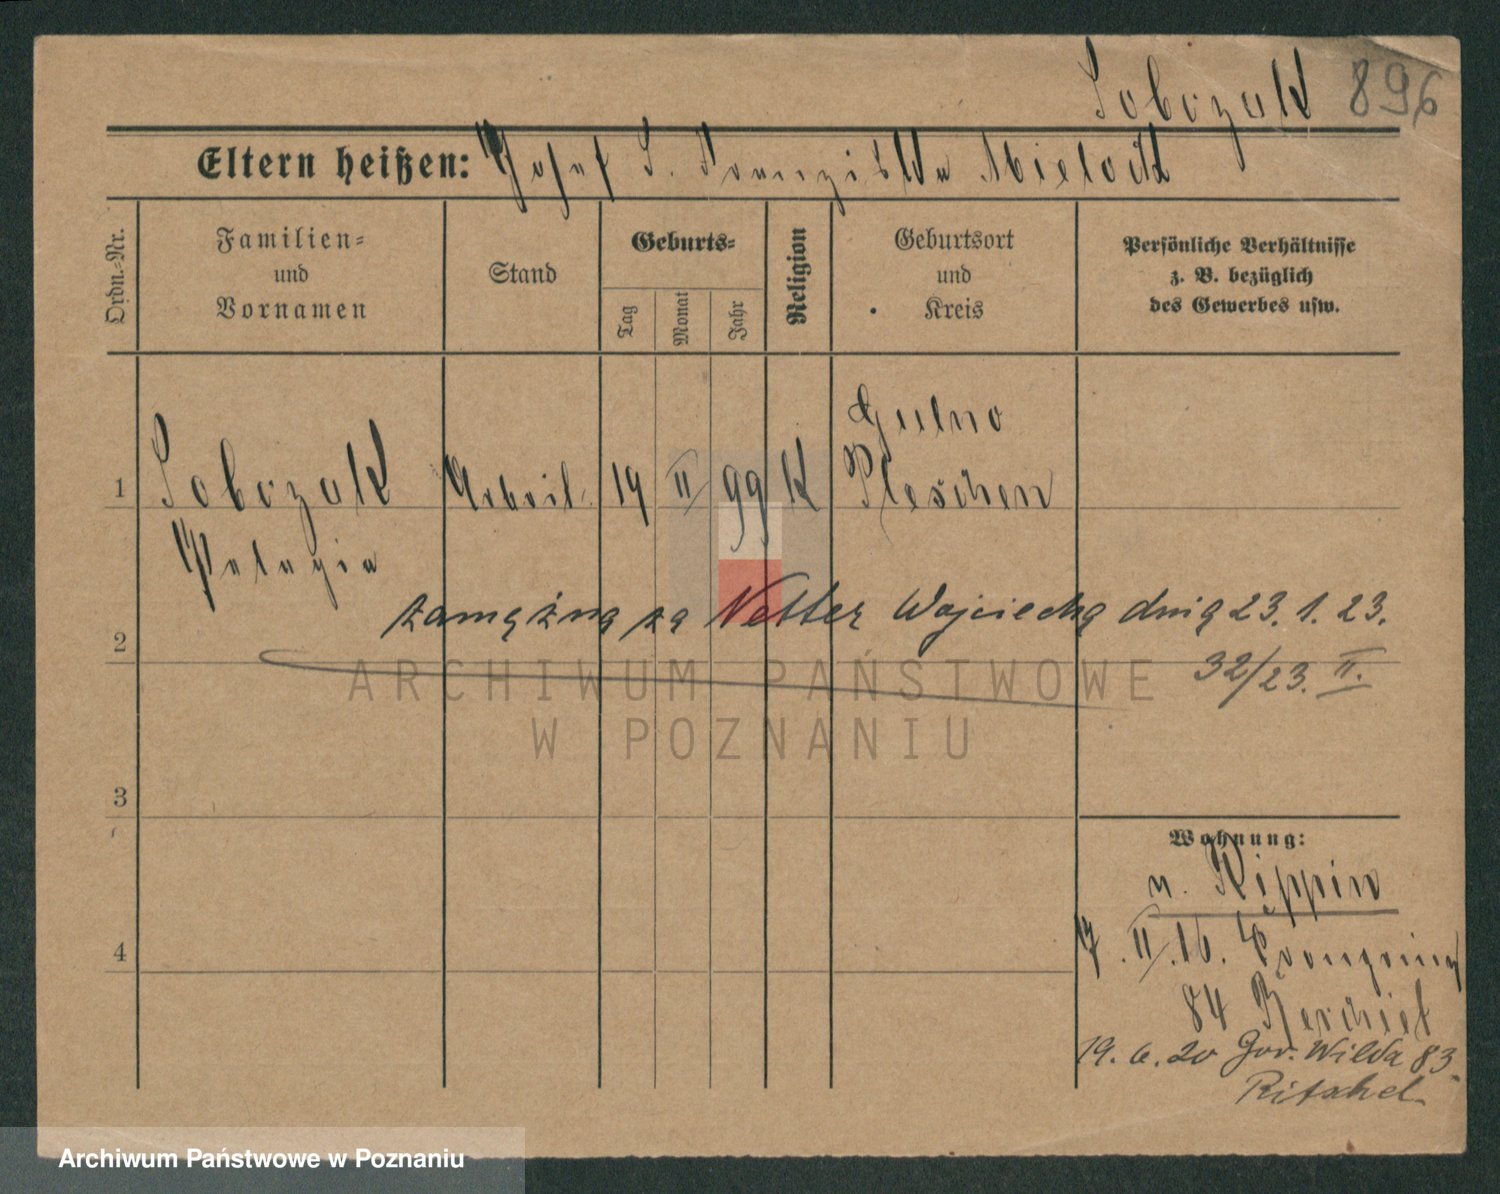 Sobczak 896
Eltern heißen: Josef S. Franziska Mielock
Ordn.-Nr.
Familien-
und
Vornamen
Stand
Geburts-
Tag
Monat
Jahr
Religion
Geburtsort
und
Kreis
Persönliche Verhältnisse
z. B. bezüglich
des Gewerbes usw.
1 Sobczak Arbeit. 19 II 99 K
Pelagia
Pleschen
zamężna za Netter Wojciecha dnia 23. 1. 23.
2
32/23. II.
ARCHIWUM PAŃSTWOWE
W POZNANIU
3
Wohnung:
n. Rippin
4
7. II. 16.
84
19. 6. 20 Gor. Wilda 83.
Ritschel
Archiwum Państwowe w Poznaniu